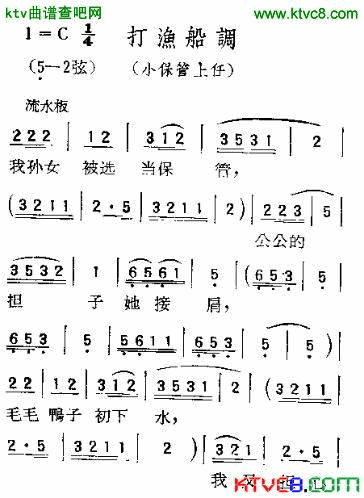 ktv曲谱查吧网 http:// www.ktvc8.com
1=C 1/4 打漁船調
(5—2弦) (小保管上任)
流水板
222 | 12 | 312 | 3531 | 2 |
我孙女 被选 当保 管,
(3211 | 2·5 | 3211 | 2) | 223 | 5 |
公公的
3532 | 1 | 6561 | 5 | (653 | 5 |
担 子 她接 肩,
653 | 5 | 5611 | 653 | 5) |
22 | 12 | 312 | 3531 | 2 |
毛毛 鴨子 初下 水,
2·5 | 3211 | 2) |
我 又
KTVC8.com